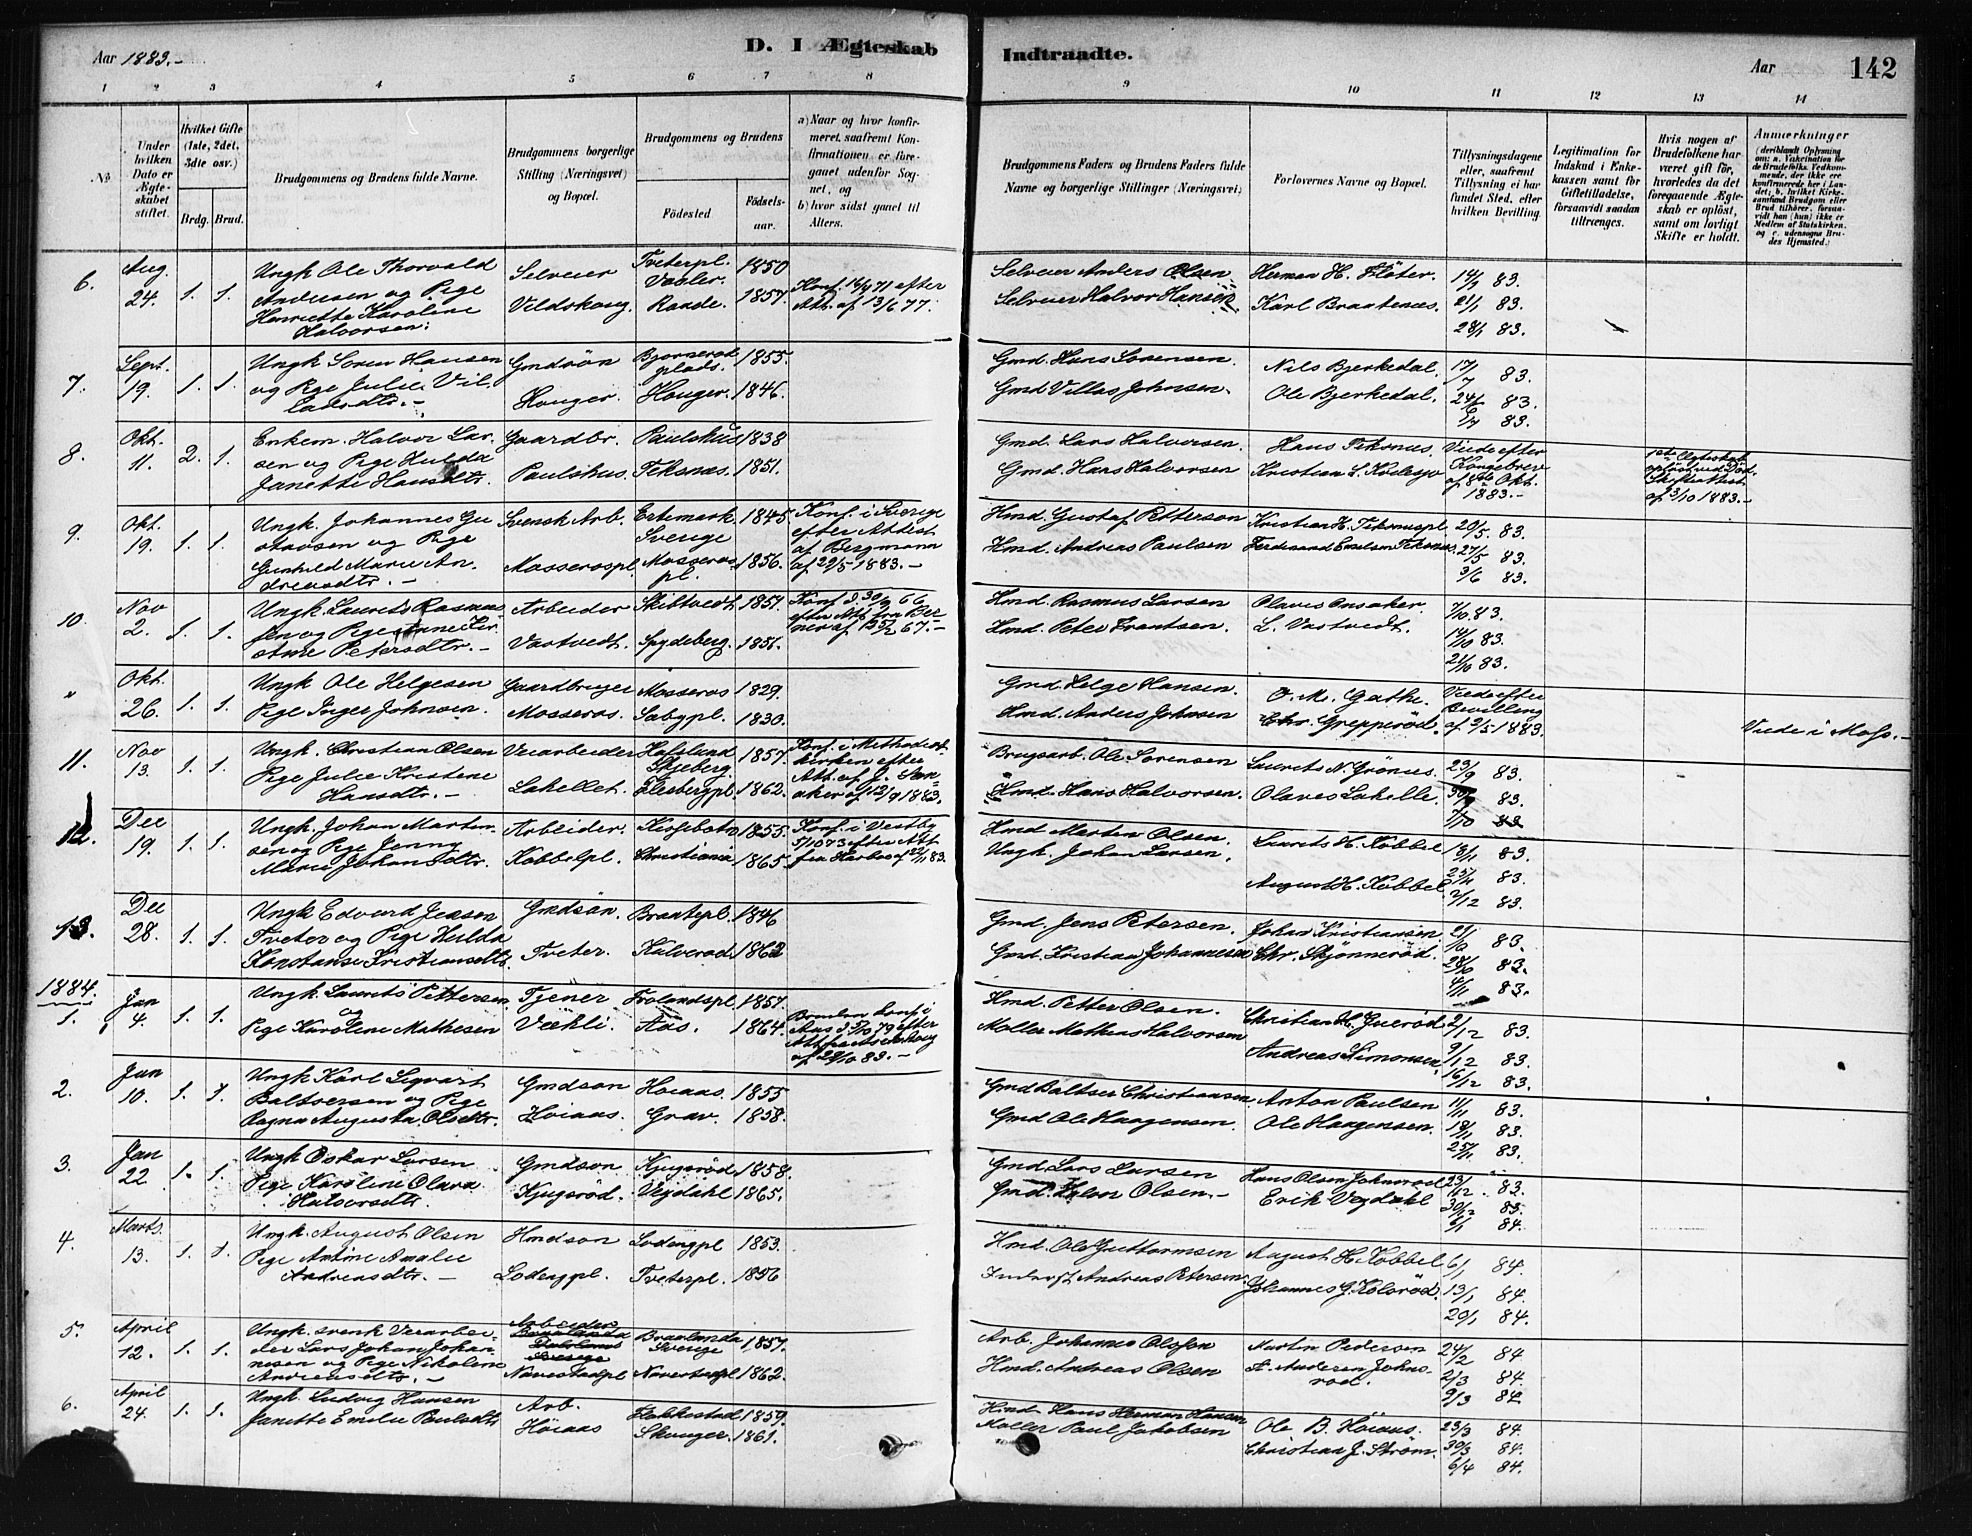 Aar 1883.-
D. I Ægteskab
Indtraadte.
Aar
142
1 2 3 4 5 6 7 8 9 10 11 12 13 14
No.
Under hvilken Dato er Ægteskabet stiftet.
Hvilket Gifte (1ste, 2det, 3dte osv.)
Brdg. Brud.
Brudgommens og Brudens fulde Navne.
Brudgommens borgerlige Stilling (Næringsvei) og Bopæl.
Brudgommens og Brudens
Fødested
Fødselsaar.
a) Naar og hvor konfirmeret, saafremt Konfirmationen er foregaaet udenfor Sognet, og
b) hvor sidst gaaet til Alters.
Brudgommens Faders og Brudens Faders fulde Navne og borgerlige Stillinger (Næringsvei)
Forlovernes Navne og Bopæl.
Tillysningsdagene eller, saafremt Tillysning ei har fundet Sted, efter hvilken Bevilling.
Legitimation for Indskud i Enkekassen samt for Giftetilladelse, forsaavidt saadan tiltrænges.
Hvis nogen af Brudefolkene har været gift før, hvorledes da det foregaaende Ægteskab er opløst, samt om lovligt Skifte er holdt.
Anmærkninger
6. Aug. 24. 1. 1.
Ungk Ole Thorvald
Andersen og Pige
Henriette Karoline
Halvorsen.
Selveier
Vildskoug
Tveterpl. Vaaler. 1850
Raade. 1857.
Konf. 16/4 71 efter
Att. af 13/6 77.
Selveier Anders Olsen
Selveier Halvor Hansen
Herman H. Fløter.
Karl Braatenes.
14/1 83.
21/1 83.
28/1 83.
7. Sept. 19. 1. 1.
Ungk Soren Hansen
og Pige Julie Vil
ladsdtr.-
Gmdsön
Houger.
Bjornerod plads. 1855.
Houger. 1846.
Gmd. Hans Sorensen.
Gmd Villas Johnsen.
Nils Bjerkedal.
Ole Bjerkedal.
17/7 83.
24/6 83.
8. Okt. 11. 2. 1.
Enkem. Halvor Lar-
sen og Pige Hulda
Janette Hansdtr.
Gaardbr.
Paulshus.
Paulshus 1838
Teksnæs. 1851.
Gmd. Lars Halvorsen.
Gmd. Hans Halvorsen
Hans Teksnæs.
Viede efter
Kongebrev
af 8de Okt.
1883.-
1ste Ægteskab
opløst ved Död.
af 23/10 1883.-
9. Okt. 19. 1. 1.
Ungk. Johannes Gu
stavsen og Pige
Gunhild Marie An.
dreasdtr. -
Svensk Arb.
Mosserospl.
Ertemark Sverige 1845
Mosseros pl. 1856.
Konf. i Sverige
efter Attest
af Bergmann
af 29/5 1883.-
Hmd. Gustaf Petterson
Hmd. Andreas Paulsen
20/5. 83.
27/5 83.
3/6 83.
10. Nov 2. 1. 1.
Ungk. Laurits Rasmus
Arbeider
Vastvedt.
Skiltvedt 1857.
Spydeberg. 1856.
Konf. d. 30/9 66
Hmd. Rasmus Larsen
Hmd. Peter Frantsen.
Olaves Onsaker.
L. Vastvedt.
7/10 83.
14/10 83.
21/10 83.
" Okt. 26. 1. 1.
Ungk Ole Helgesen
Pige Inger Johnsen.
Gaardbruger
Mosseros.
Mosseros 1829.
Sabypl. 1830.
Gmd. Helge Hansen.
Hmd. Anders Johnsen
O. M. Gathe.
Chr. Grepperöd.
Viede efter
Bevilling
af 2/5 1883.
Viede i Moss.-
11. Nov 13. 1. 1.
Ungk. Christian Olsen
Pige Julie Kristene
Hansdtr. -
Veiarbeider
Lakellet.
Hafslund Skjeberg 1857.
Elesbergpl. 1862.
Konf. i Methodist
kirken efter
Att. af J. San
aker af 12/9 1883.
Brugsarb. Ole Sorensen
Hmd. Hans Halvorsen.
Laurits N. Grönnes.
Olaves Lakelle.
23/9 83.
30/9 83.
7/10 83
12. Dec 19. 1. 1.
Ungk. Johan Marten-
sen og Pige Jenny
Marie Johansdtr.
Arbeider.
Kobbelpl.
1855.
Christiania 1865.
Konf. i Vestby
Hmd Morten Olsen.
Ungk. Johan Larsen.
Laurits H. Köbbel
August H. Köbbel
18/11 83.
25/11 83.
2/12 83.
13. Dec 28. 1. 1.
Ungk Edvard Jensen
Tveter og Pige Hulda
Konstanse Kristiansdtr.
Gmdsön.
Tveter.
Braatepl. 1846
Kalverod 1862
Gmd. Jens Petersen.
Gmd. Kristian Johannesen
Johan Kristiansen
Chr. Skjönneröd.
21/10 83.
28/10 83.
4/11 83.
1884.
1. Jan 4. 1. 1.
Ungk. Laurits Pettersen
og
Pige Karoline Mathesen
Tjener
Vækli.
Frolandspl. 1857.
Aas. 1864.
Bruden konf. i
af 28/10 83.-
Hmd. Petter Olsen.
Moller Mathias Halvorsen
Andreas Simonsen.
2/12 83.
9/12 83.
16/12 83.
2. Jan 10. 1. 1.
Ungk Karl Sigvart
Baltsersen og Pige
Ragna Augusta Olsdtr.
Gmdson
Hoiaas.
Hoiaas. 1855
Grav. 1858.
Gmd Baltser Christiansen
Gmd Ole Haagensen.
Anton Paulsen
Ole Haagensen.
11/11 83.
18/11 83.
25/11 83.
3. Jan 22 1. 1.
Ungk Oskar Larsen
Pige Karoline Olava
Halvorsdtr.
Gmdson
Kjugsröd.
Kjugsröd 1858.
Vegdahl 1865.
Gmd. Lars Larsen
Gmd. Halvor Olsen.-
Hans Olsen Johnsrod
Erik Vegdahl
23/12 83.
30/12 83.
6/1 84.
4. Marts. 13. 1. 1.
Ungk. August Olsen
Pige Antine Amalie
Andreasdtr. -
Hmdson
Lodengpl.
Lodengpl 1853.
Tveterpl. 1856
Hmd. Ole Guttormsen
Andreas Petersen.
August H. Köbbel
Johannes G. Kolsröd.
6/1 84.
13/1 84.
20/1 84.
5. April 12. 1. 1.
Ungk. svensk Veiarbei-
der Lars Johan Johan
nesen og Pige Nikoline
Andreasdtr. -
Arbeider
Navestadpl
Braalanda Sverige 1857.
Navestadpl 1862.
Arb. Johannes Olsson
Hmd. Andreas Olsen
Martin Pedersen
A. Andersen Johns-
rod.
24/2 84
2/3 84.
9/3 84
6. April 24. 1. 1.
Ungk. Ludvig Hansen
Janette Emilie Paulsdtr.
Arb.
Höiaas
Flakkestad 1859.
Skouger. 1861.
Hmd. Hans Herman Hansen
Moller Paul Jakobsen
Ole B. Höiaas.
Christian J. Ström.
23/3 84.
30/3 84.
6/4 84.